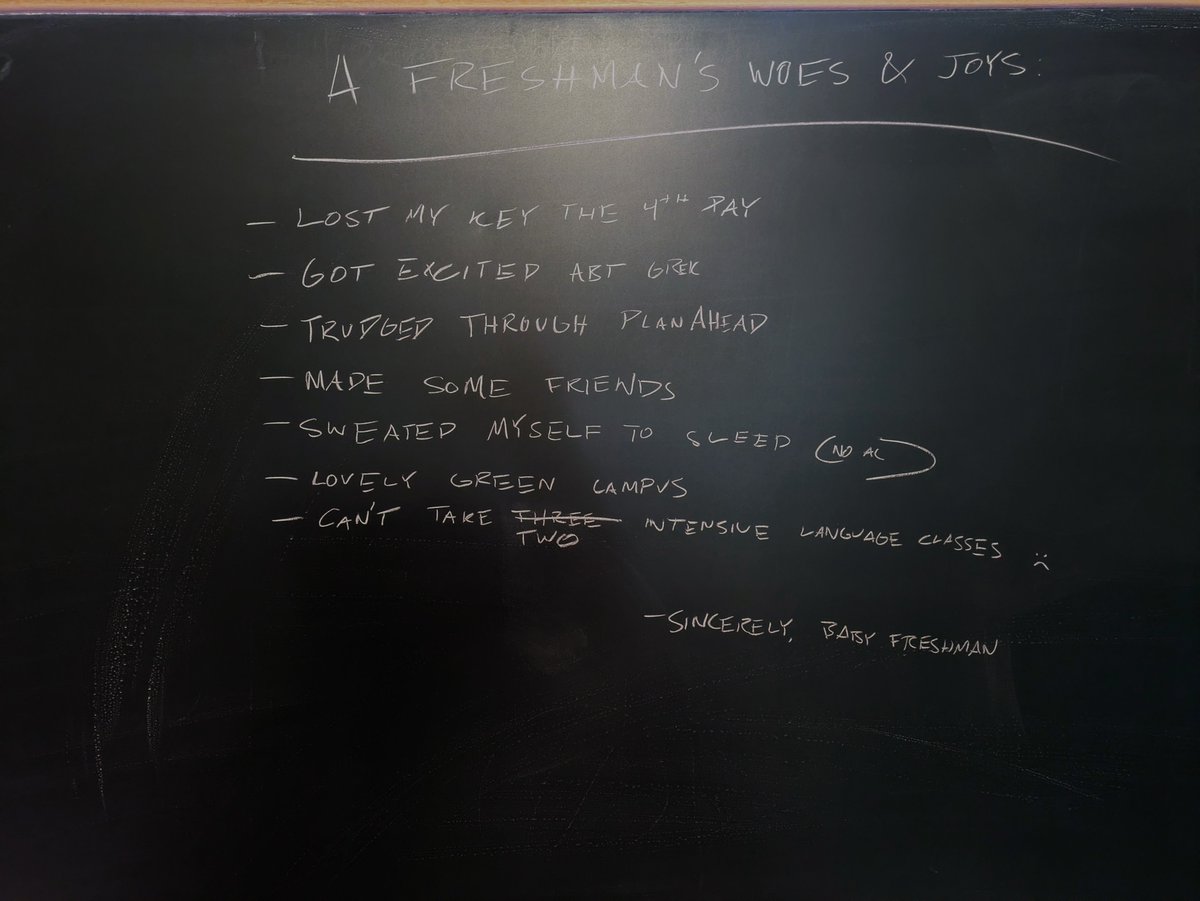 A FRESHMAN'S WOES & JOYS:
— LOST MY KEY THE 4TH DAY
— GOT EXCITED ABT GREK
— TRUDGED THROUGH PLANAHEAD
— MADE SOME FRIENDS
— SWEATED MYSELF TO SLEEP (NO AC)
— LOVELY GREEN CAMPUS
— CAN'T TAKE THREE INTENSIVE LANGUAGE CLASSES :(
TWO
—SINCERELY, BABY FRESHMAN